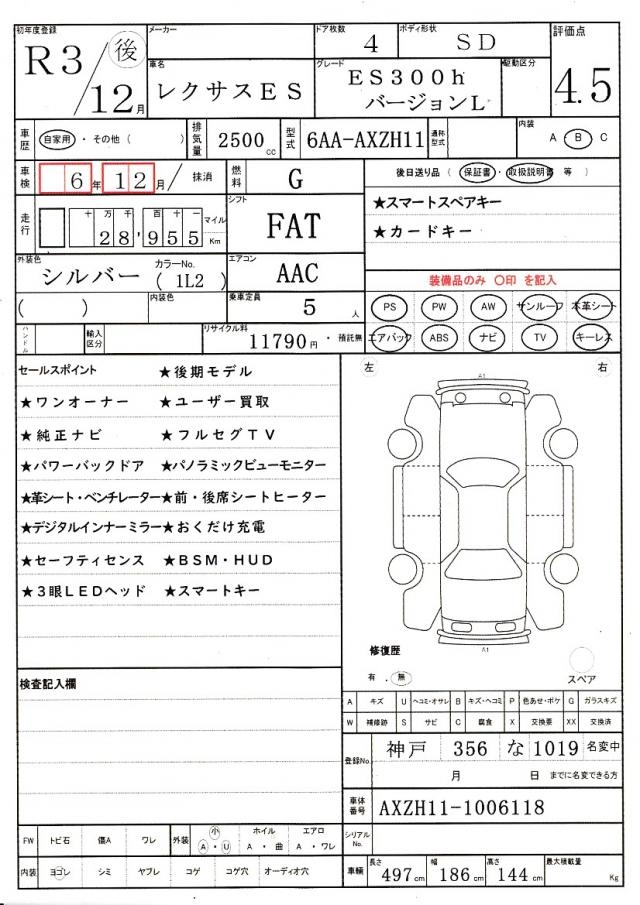 初年度登録 R3/12月 後
メーカー
ドア枚数 4
ボディ形状 SD
評価点 4.5
車名 レクサスES
グレード ES300h
バージョンL
駆動区分
車歴 自家用・その他( )
排気量 2500cc
型式 6AA-AXZH11
通称型式
内装 A B C
車検 6年12月/抹消
燃料 G
後日送り品(保証書・取扱説明書 等)
★スマートスペアキー
★カードキー
走行 十万千百十一
28,955 マイル Km
シフト FAT
外装色 シルバー
カラーNo. (1L2)
エアコン AAC
装備品のみ 〇印 を記入
( )
内装色
乗車定員 5人
PS PW AW サンルーフ 本革シート
ハンドル
輸入区分
リサイクル料 11790円・預託無
エアバック ABS ナビ TV キーレス
セールスポイント ★後期モデル
★ワンオーナー ★ユーザー買取
★純正ナビ ★フルセグTV
★パワーバックドア ★パノラミックビューモニター
★革シート・ベンチレーター★前・後席シートヒーター
★デジタルインナーミラー★おくだけ充電
★セーフティセンス ★BSM・HUD
★3眼LEDヘッド ★スマートキー
左 右
A1
A1
修復歴
有.無
スペア
検査記入欄
A キズ U ヘコミ・オサレ B キズ・ヘコミ P 色あせ・ボケ G ガラスキズ
W 補修跡 S サビ C 腐食 X 交換要 XX 交換済
登録No. 神戸 356 な1019 名変中
月 日 までに名変できる方
車体番号 AXZH11-1006118
シリアルNo.
FW トビ石 傷A ワレ
外装 小 A・U
ホイル A・曲
エアロ A・ワレ
内装 ヨゴレ シミ ヤブレ コゲ コゲ穴 オーディオ穴
車輌 長さ 497cm 幅 186cm 高さ 144cm 最大積載量 Kg